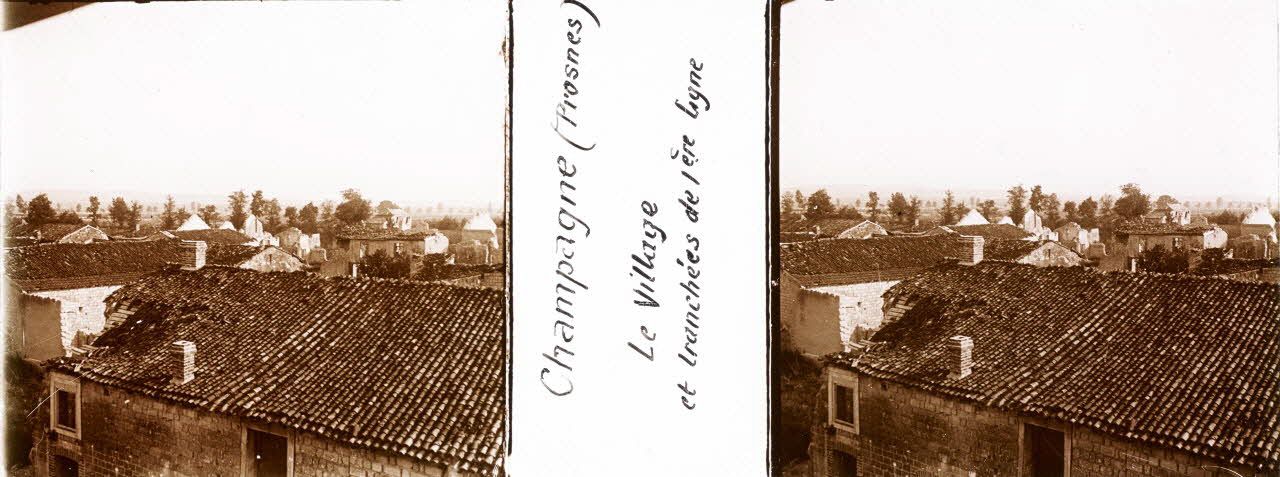 Champagne (Prosnes)
Le Village
et tranchées de 1ère ligne